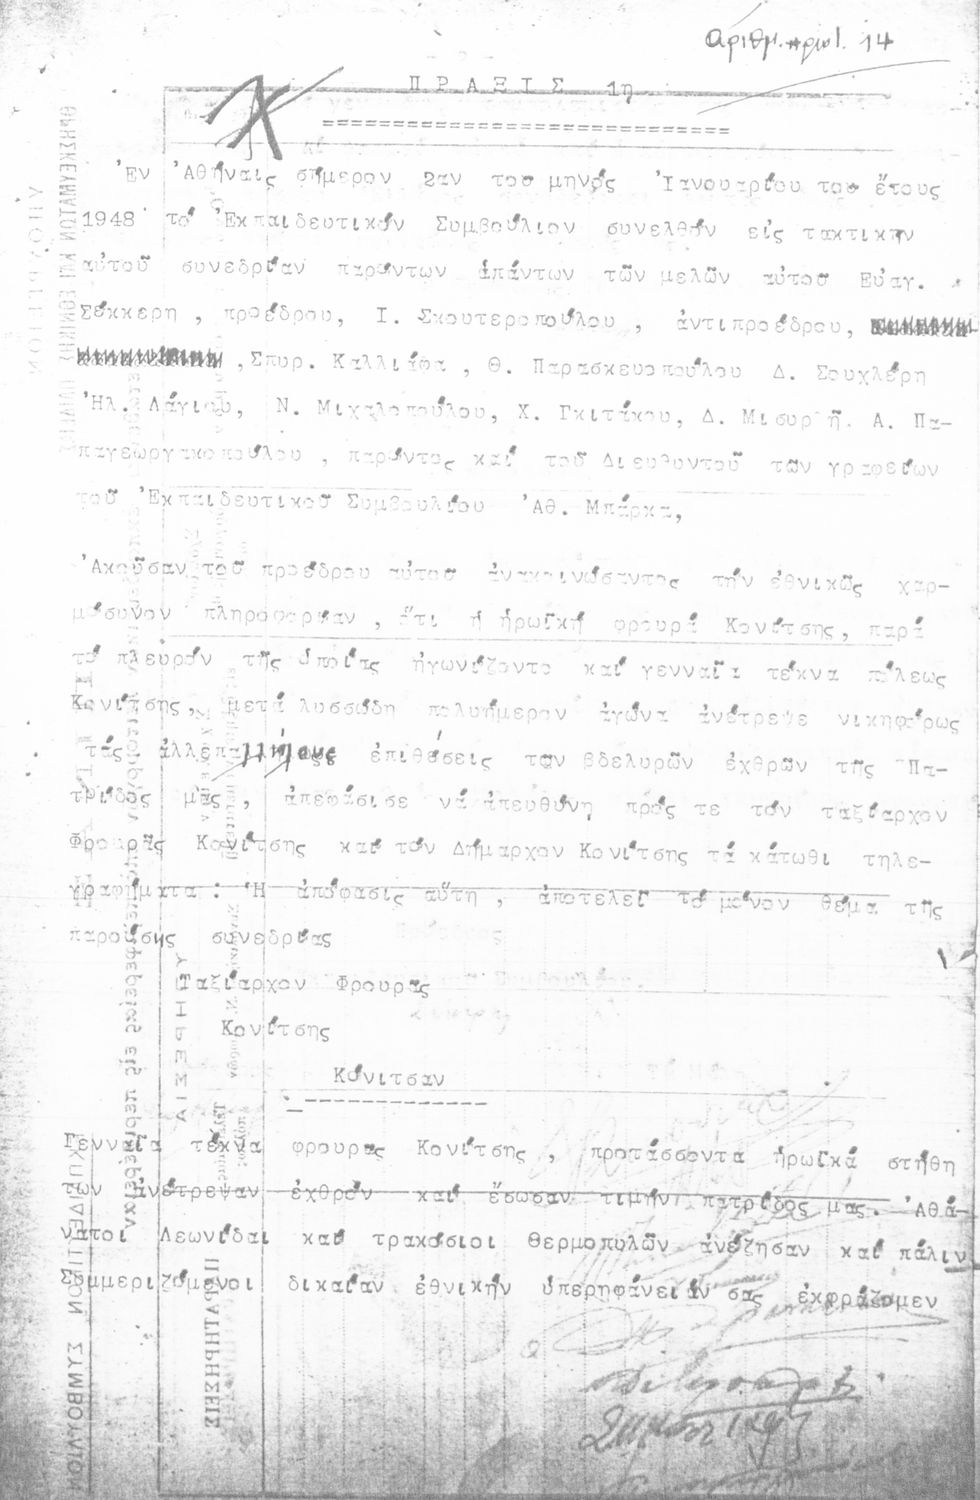 Αριθμ. πρωτ. 14
ΠΡΑΞΙΣ 1η
==============================
Ἐν Ἀθήναις σήμερον 2αν του μηνός Ἰανουαρίου του ἔτους
1948 τό Ἐκπαιδευτικόν Συμβούλιον συνελθόν εἰς τακτικην
αὐτοῦ συνεδρίαν παρόντων ἁπάντων τῶν μελῶν αὐτοῦ Εὐαγ.
Σέκκερη , προέδρου, Ι. Σκουτεροπούλου , ἀντιπροέδρου,
,Σπυρ. Καλλιάφα , Θ. Παρασκευοπούλου Δ. Σουχλέρη
Ἠλ. Λάγιου, Ν. Μιχαλοπούλου, Χ. Γκιτάκου, Δ. Μισυρλῆ. Α. Πα-
παγεωργακοπούλου , παρόντος καί τοῦ Διευθυντοῦ τῶν γραφείων
τοῦ Ἐκπαιδευτικοῦ Συμβουλίου Ἀθ. Μπάρκα,
Ἀκοῦσαν τοῦ προέδρου αὐτοῦ ἀνακοινώσαντος τήν ἐθνικῶς χαρ-
μόσυνον πληροφορίαν , ὅτι ἡ ἡρωϊκή φρουρά Κονίτσης, παρά
τό πλευρόν τῆς ὁποίας ἠγωνίζοντο καί γενναῖα τέκνα πόλεως
Κονίτσης, μετά λυσσώδη πολυήμερον ἀγώνα ἀνέτρεψε νικηφόρως
τάς ἀλλεπαλλήλους ἐπιθέσεις των βδελυρῶν ἐχθρῶν τῆς Πα-
τρίδος μας , ἀπεφάσισε νά ἀπευθύνη πρός τε τόν ταξίαρχον
Φρουρᾶς Κονίτσης καί τόν Δήμαρχον Κονίτσης τά κάτωθι τηλε-
γραφήματα : Ἡ ἀπόφασις αὕτη , ἀποτελεῖ τό μόνον θέμα τῆς
παρούσης συνεδρίας
Ταξίαρχον Φρουρας
Κονίτσης
Κόνιτσαν
-------------
Γενναῖα τέκνα φρουρας Κονίτσης , προτάσσοντα ἡρωϊκά στήθη
των ἀνέτρεψαν ἐχθρόν καί ἔσωσαν τιμήν πατρίδος μας. Ἀθά-
νατοι Λεωνίδαι καί τρακόσιοι Θερμοπυλῶν ἀνέζησαν καί πάλιν
Συμμεριζόμενοι δικαίαν ἐθνικήν ὑπερηφάνειάν σας ἐκφράζομεν